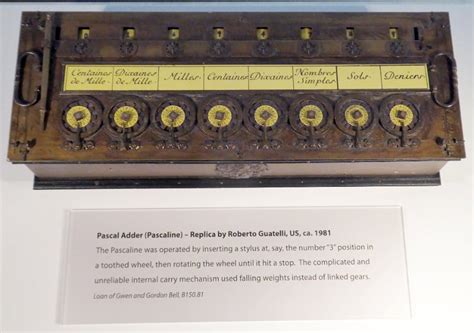 Centaines de Mille
Dixaines de Mille
Milles
Centaines
Dixaines
Nombres Simples
Sols
Deniers
Pascal Adder (Pascaline) – Replica by Roberto Guatelli, US, ca. 1981
The Pascaline was operated by inserting a stylus at, say, the number "3" position in
a toothed wheel, then rotating the wheel until it hit a stop. The complicated and
unreliable internal carry mechanism used falling weights instead of linked gears.
Loan of Gwen and Gordon Bell, B150.81